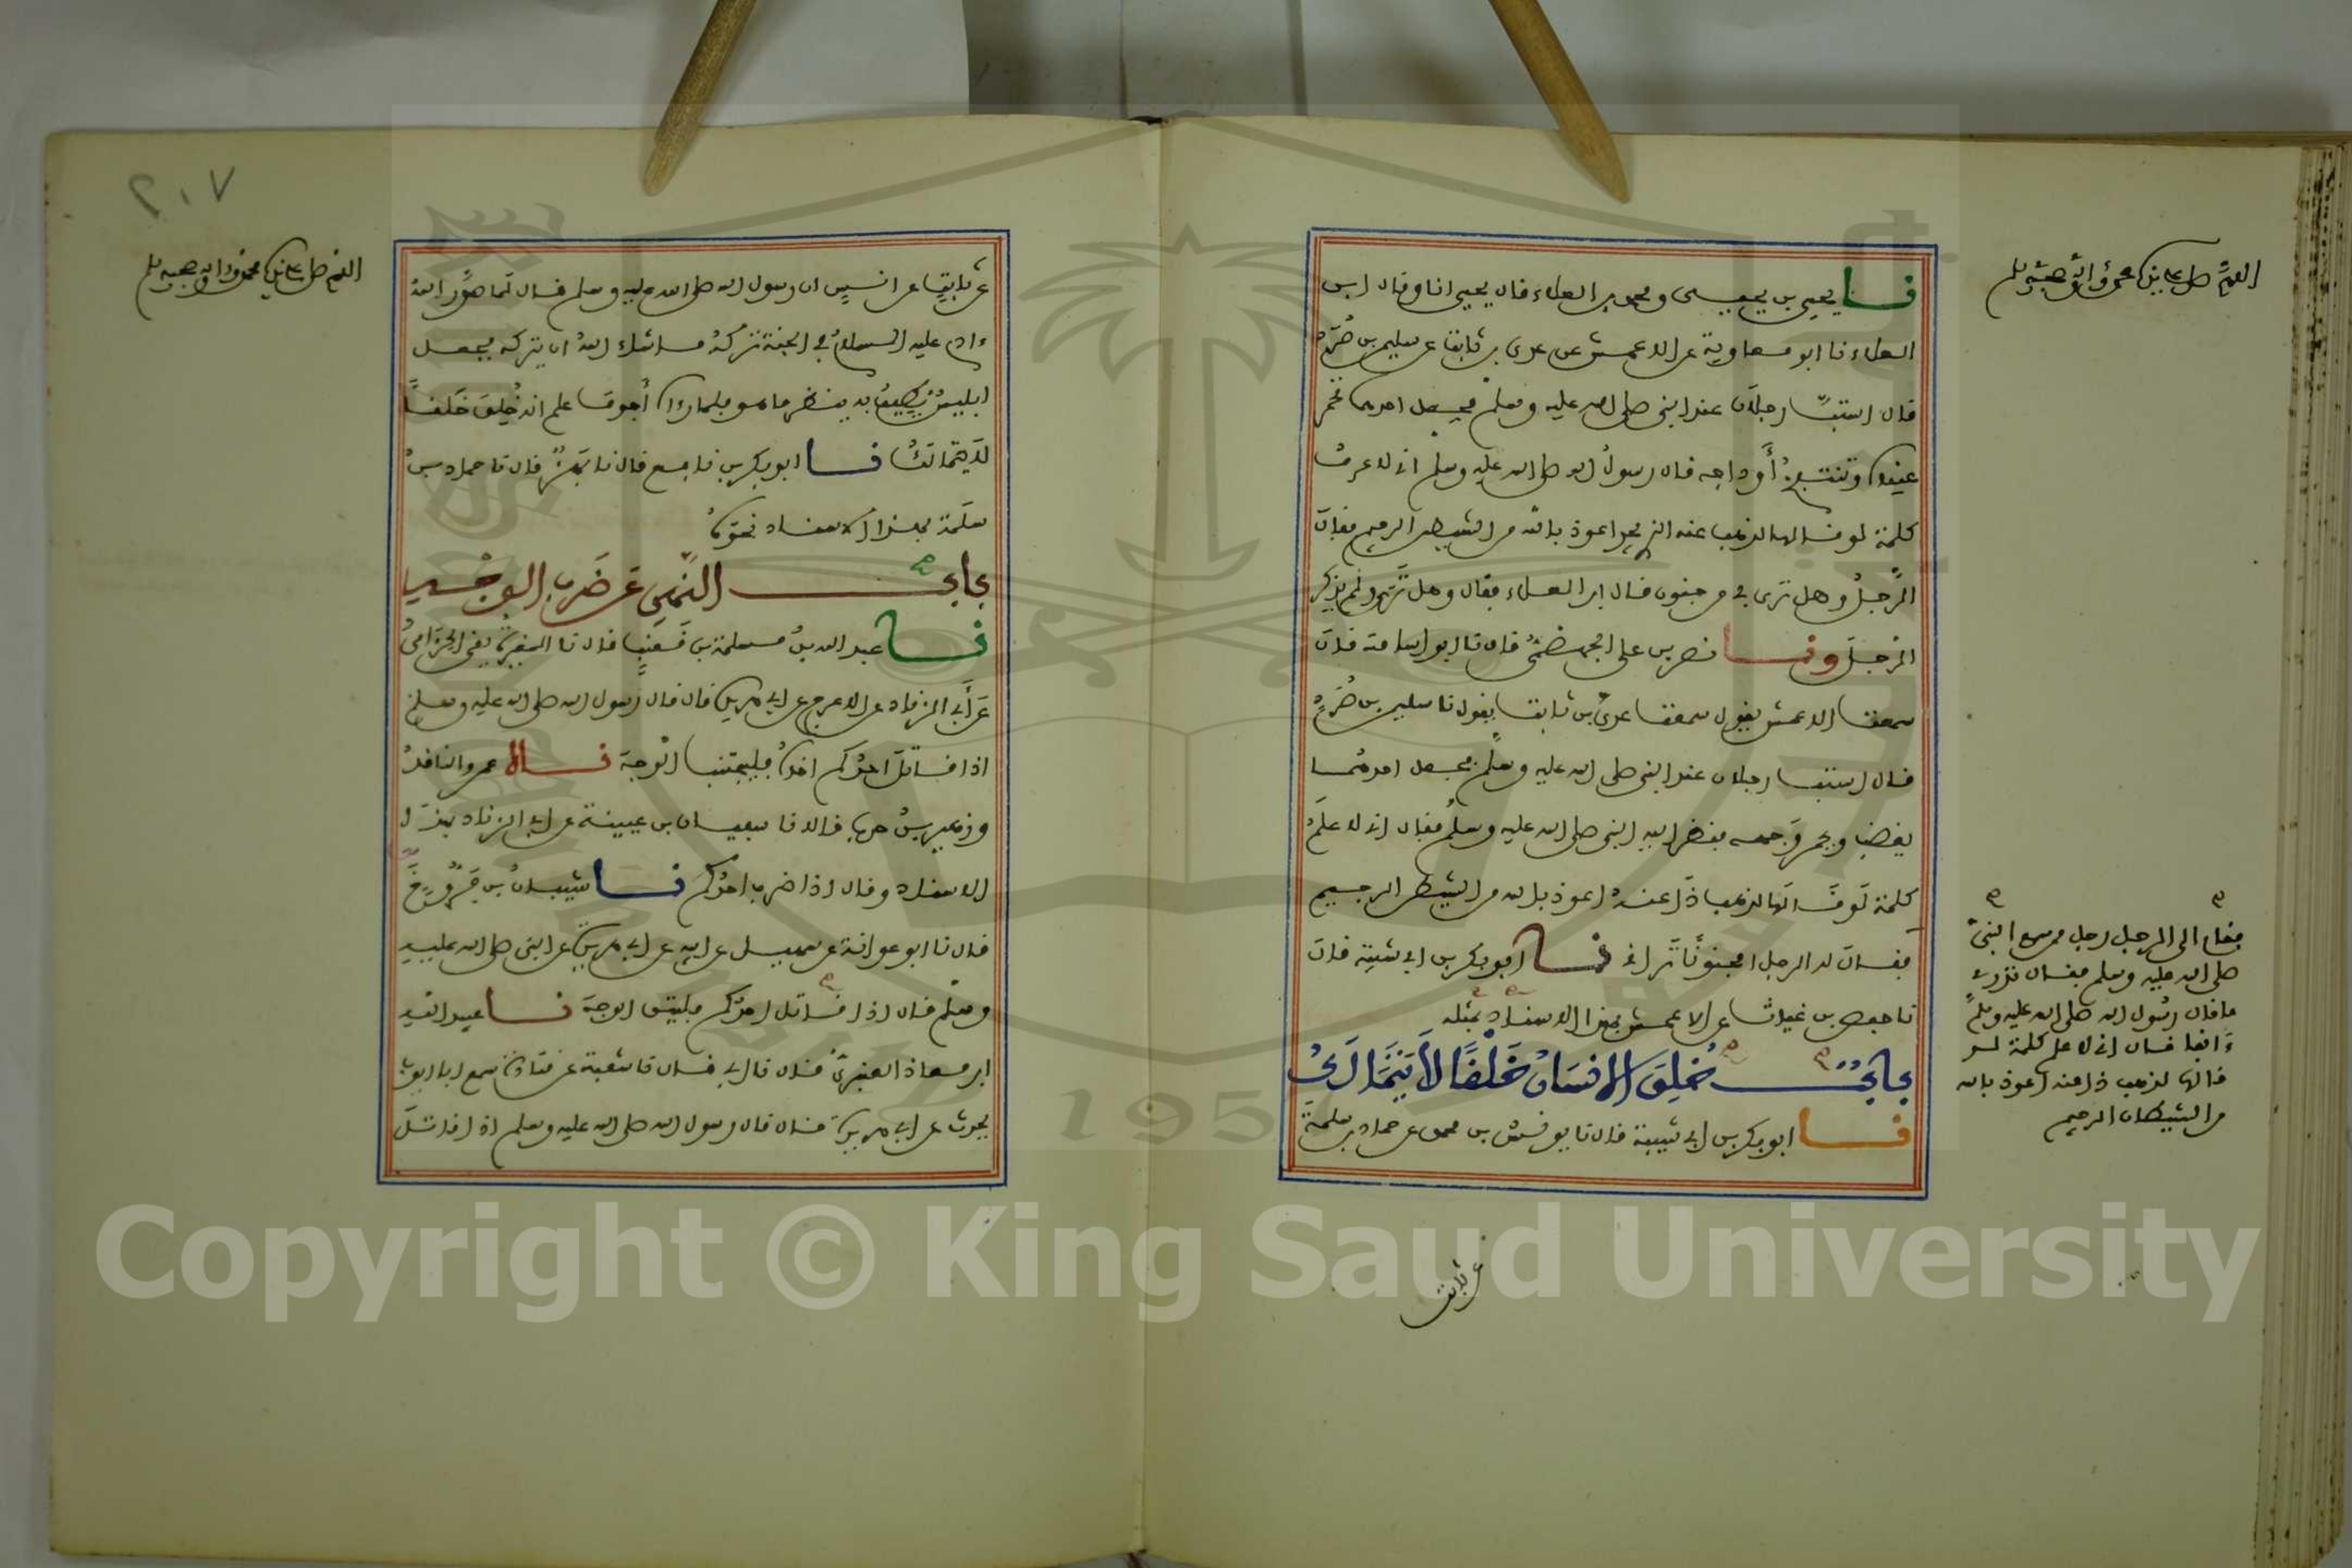 اللهم صل على نبينا محمد وءاله وصحبه وسلم
نا يحيى بن يحيى ومحمد بن العلاء قال يحيى انا وقال ابن
العلاء نا ابو معاوية عن الاعمش عن عدى بن ثابت عن سليمن بن صُرَدٍ
قال استبَّ رجلان عند النبى صلى الله عليه وسلم فجعل احدهما تحمر
عيناه وتنتفخ أوداجه قال رسولُ الله صلى الله عليه وسلم انى لاعرف
كلمة لو قالها لذهب عنه الذى يجد اعوذ بالله من الشيطن الرجيم فقال
الرّجلُ وهل ترى بى من جنون قال ابن العلاء فقال وهل ترى ولم يذكر
الرجلَ ونا نصر بن على الجهضمىُّ قال نا ابو اسامة قال
سمعت الاعمش يقول سمعت عدىَّ بن ثابت يقول نا سليمن بن صُرَدٍ
قال استب رجلان عند النبى صلى الله عليه وسلم فجعل احدهما
يغضب ويحمر وَجهه فنظر اليه النبى صلى الله عليه وسلم فقال انى لاعلم
كلمة لَو قَالهَا لذهب ذَا عنهُ اعوذ بالله من الشيطن الرجيم
فقال له الرجل امجنونًا تَرانى نا ابو بكر بن ابى شيبة قال
نا حفص بن غياث عن الاعمش بهذا الاسناد بمثله
بابٌ خُلِقَ الانسَانُ خَلْقًا لاَ يَتَمَالَكُ
نا ابو بكر بن ابى شيبة قال نا يونس بن محمد عن حماد بن سلمةَ
فقام الى الرجل رجل ممن سمع النبىَّ
صلى الله عليه وسلم فقال تدرى
ما قال رسُول الله صلى الله عليه وسلم
ءَانفا قال انى لاعلم كلمة لو
قالها لذهب ذا عنه اعوذ بالله
من الشيطان الرجيم
عن ثابت
٢٠٧
اللهم صل على نبينا محمد وءاله وصحبه وسلم
عن ثابتٍ عن انسٍ ان رسول الله صلى الله عليه وسلم قال لما صوَّر اللهُ
ءادم عليه السلامُ فى الجنة تركهُ ما شاء اللهُ ان يتركه فجعل
ابليسُ يُطيفُ به ينظر ما هو فلما رءاه أجوف علم انه خُلِقَ خَلقًا
لا يتمالكُ نا ابو بكر بن نافع قال نا بَهْزٌ قال نا حماد بنُ
سلَمة بهذا الاسناد نحوهُ
بابُ النَّهىِ عَن ضَربِ الوَجْهِ
نا عبد الله بنُ مسلمة بن قَعنَبٍ قال نا المغيرةُ يعنى الحِزَامىَّ
عَن أبى الزناد عن الاعرج عن ابى هريرة قال قال رسول الله صلى الله عليه وسلم
اذا قاتل احدُكم اخاهُ فليجتنب الوجهَ ناه عمرو الناقدُ
وزهير بنُ حرب قالا نا سفيان بن عيينة عن ابى الزناد بهذَا
الاسناد وقال اذا ضرب احدُكم نا شيبانُ بن فَرُّوخَ
قال نا ابو عوانة عن سهيل عن ابيه عن ابى هريرة عن النبى صلى الله عليه
وسلم قال اذا قاتل احدُكم فليتق الوجهَ نا عبيد الله
ابن معاذ العنبرىُّ قال نا ابى قال نا شعبة عن قتادة سمع ابا ايوب
يحدث عن ابى هريرة قال قال رسول الله صلى الله عليه وسلم اذا قاتلَ
Copyright © King Saud University
1957